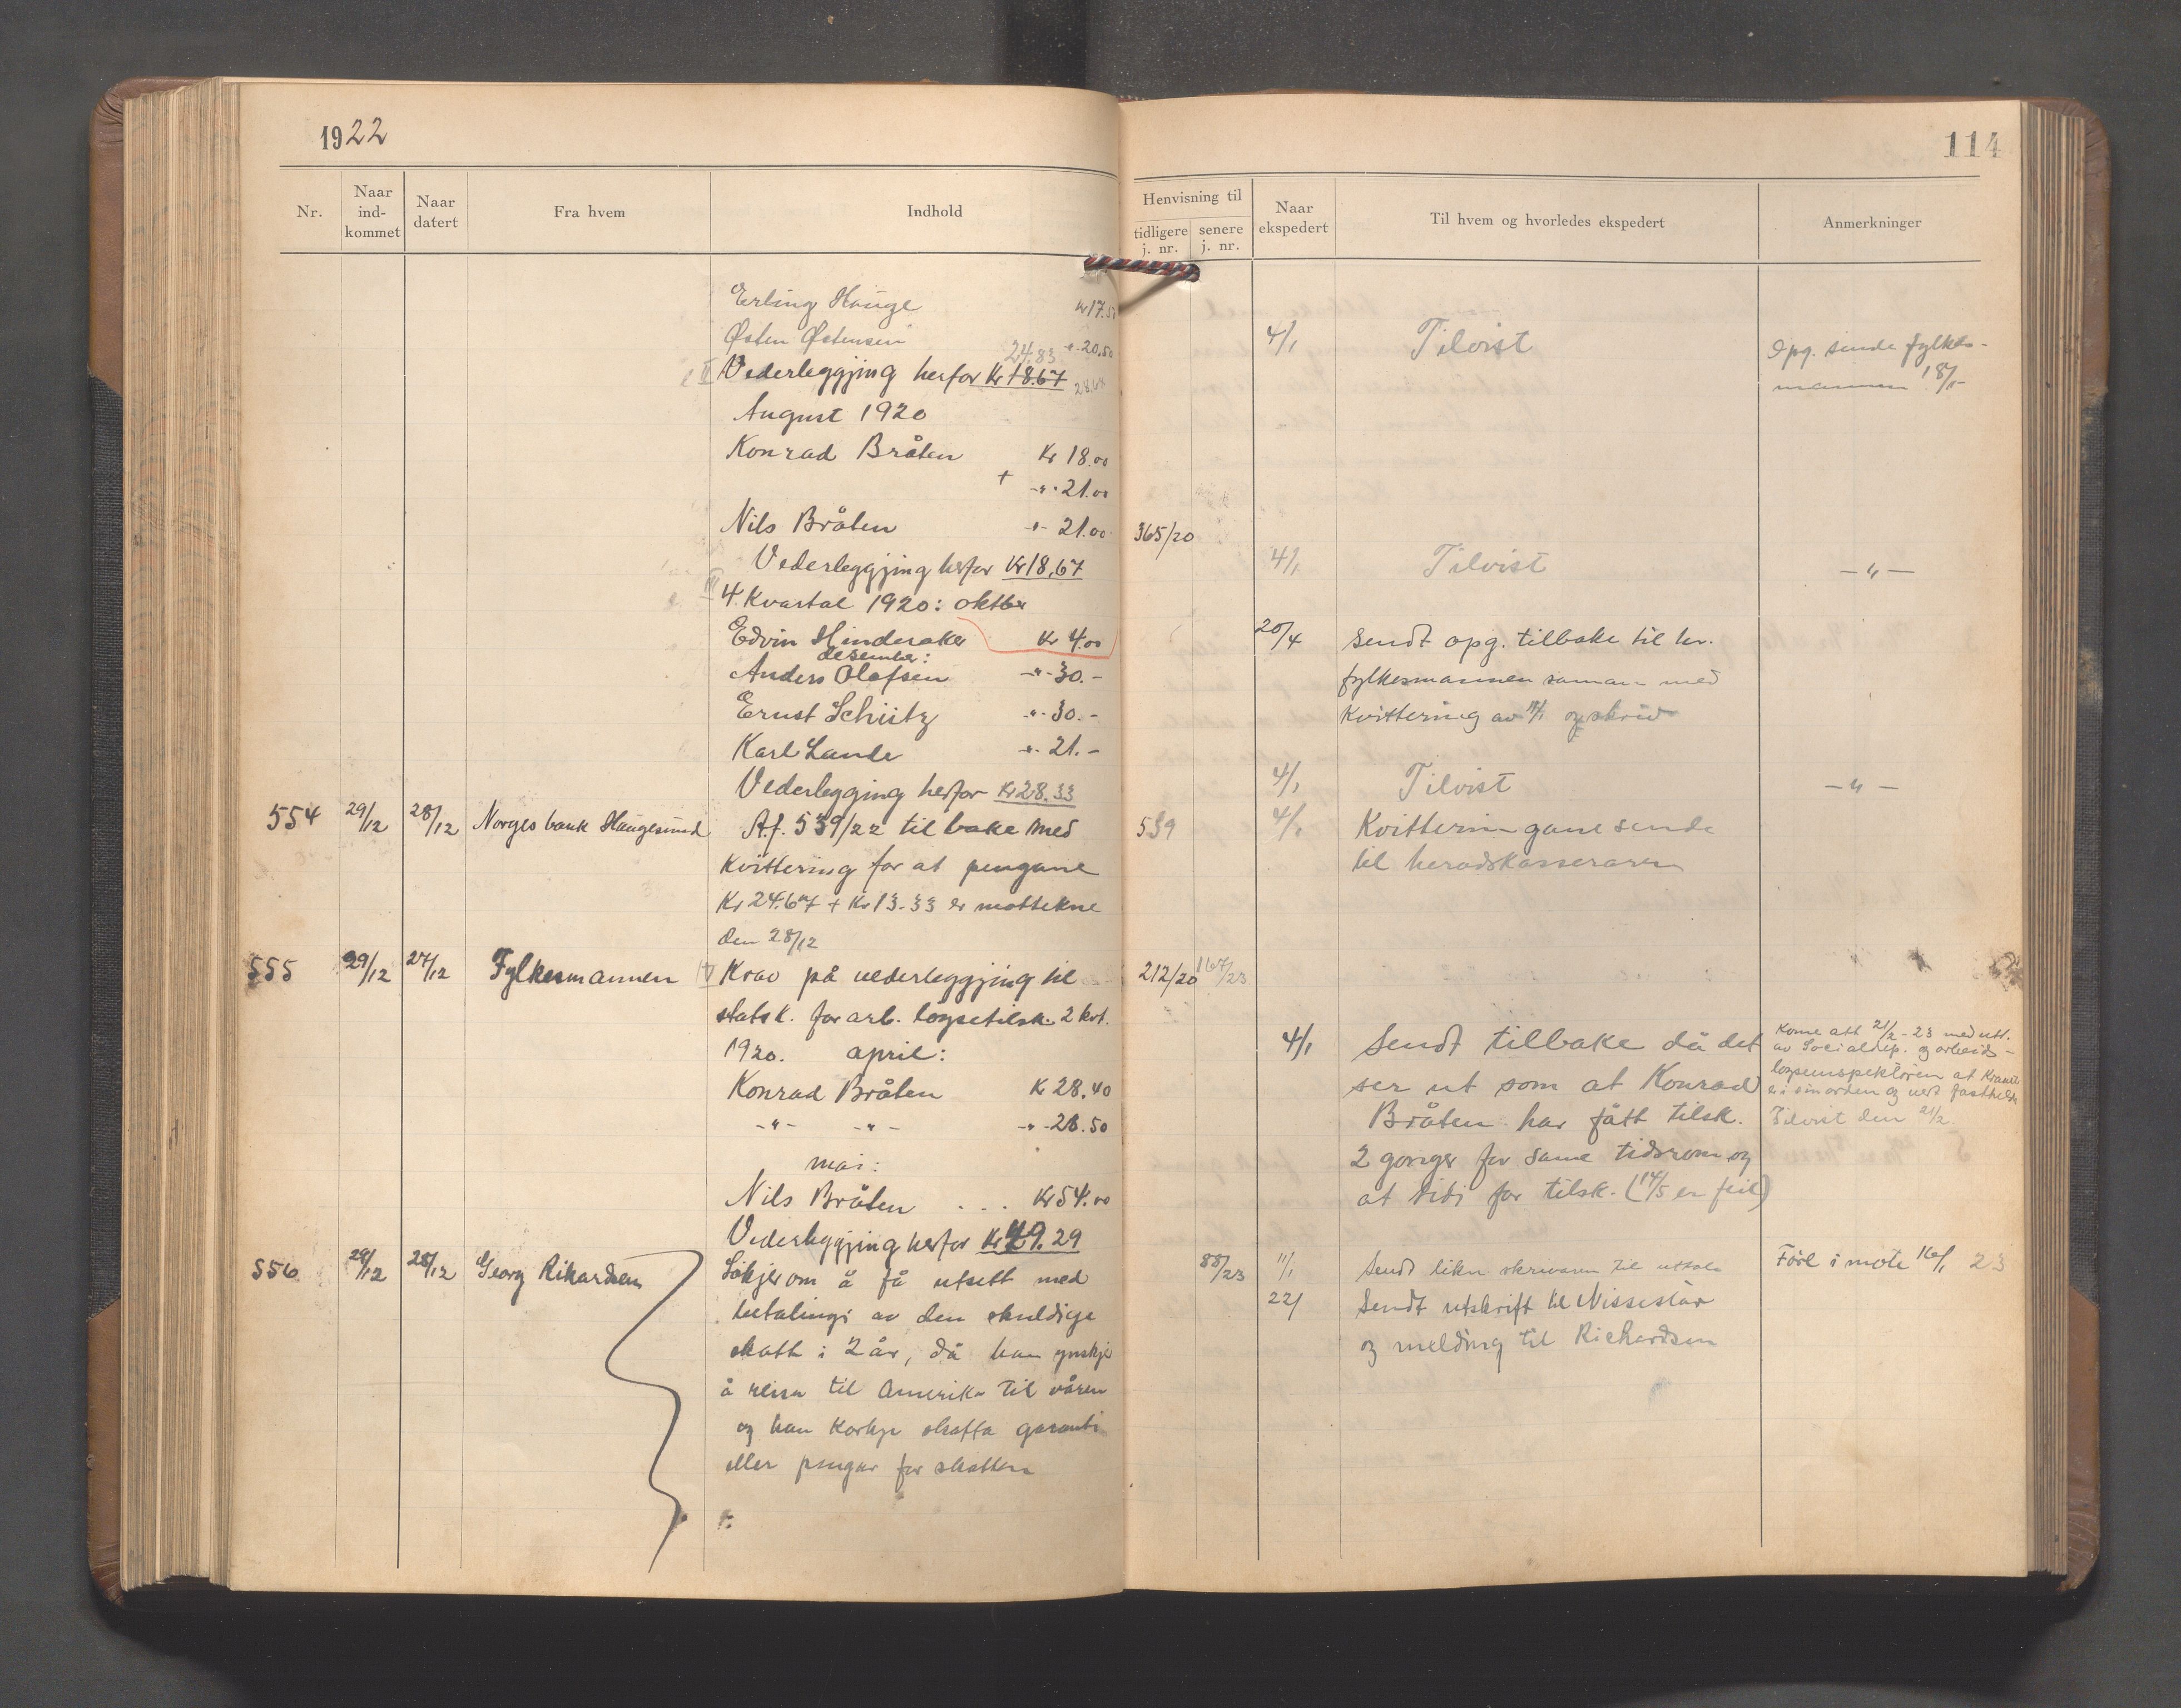 1922
Nr.
Naar
ind-
kommet
Naar
datert
Fra hvem
Indhold
Erling Hauge Kr 17.50
Østen Østensen -"- 20.50
24.83
II Vederleggjing herfor Kr 18.67
August 1920
Konrad Bråten Kr 18.00
+ -"- 21.00
Nils Bråten -"- 21.00
Vederleggjing herfor Kr 18,67
III
4. Kvartal 1920: oktbr
Edvin Hinderaker Kr 4.00
desember:
Anders Olafsen -"- 30.-
Ernst Schütz -"- 30.-
Karl Lande -"- 21.-
Vederlegging herfor Kr 28.33
554 29/12 28/12 Norges bank Haugesund A.f. 539/22 tilbake med
Kvittering for at pengane
Kr 24.67 + Kr 13.33 er mottekne
den 28/12
555 29/12 27/12 Fylkesmannen IV Krav på vederleggjing til
statsk. for arb. løysetilsk. 2 kvt.
1920. april:
Konrad Bråten Kr 28.40
-"- -"- -"- 28.50
mai:
Nils Bråten . . . Kr 54.00
Vederleggjing herfor Kr 29.29
556 29/12 28/12 Georg Rikardsen Søkjer om å få utsett med
betalingi av den skuldige
skatt i 2 år, då han ynskjer
å reisa til Amerika til våren
og kan korkje skaffa garanti
eller pengar for skatten
114
Henvisning til
tidligere
j. nr.
senere
j. nr.
Naar
ekspedert
Til hvem og hvorledes ekspedert
Anmerkninger
4/1 Tilvist Opg. sende fylkes-
mannen 18/1
365/20
4/1 Tilvist -"-
20/4 Sendt opg. tilbake til hr.
fylkesmannen saman med
Kvittering av 11/1 og skriv
4/1 Tilvist -"-
539 4/1 Kvitteringane sende
til heradskasseraren
212/20 167/23
4/1 Sendt tilbake då det
ser ut som at Konrad
Bråten har fått tilsk.
2 gonger for same tidsrom og
at tidi for tilsk. (14/5 er feil)
Kome att 21/2-23 med utt.
av Socialdep. og arbeids-
løysinspektøren at Kravet
er i sin orden og vert fasthelde
Tilvist den 21/2
88/23 11/1 Sendt likn. skrivaren til uttale Føre i møte 16/1 23
22/1 Sendt utskrift til Nissestår
og melding til Richardsen